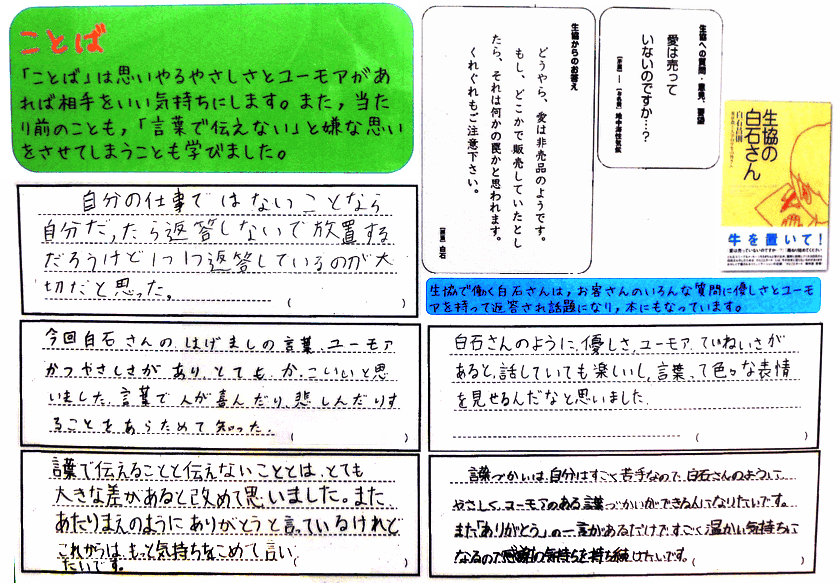 ことば
「ことば」は思いやるやさしさとユーモアがあ
れば相手をいい気持ちにします。また，当た
り前のことも，「言葉で伝えない」と嫌な思い
をさせてしまうことも学びました。
生協への質問・意見、要望
愛は売って
いないのですか…?
生協からのお答え
どうやら、愛は非売品のようです。
もし、どこかで販売していたとし
たら、それは何かの罠かと思われます。
くれぐれもご注意下さい。
白石
生協の
白石さん
白石昌則
牛を置いて!
生協で働く白石さんは，お客さんのいろんな質問に優しさとユーモ
アを持って返答され話題になり，本にもなっています。
自分の仕事ではないことなら
自分だったら返答しないで放置する
だろうけど1つ1つ返答しているのが大
切だと思った。
( )
今回白石さんの、はげましの言葉、ユーモア
かつやさしさがあり、とても、かっこいいと思
いました。言葉で人が喜んだり、悲しんだりす
ることをあらためて知った。
( )
言葉で伝えることと伝えないこととは、とても
大きな差があると改めて思いました。また
あたりまえのようにありがとうと言っているけれど
これからは、もっと気持ちをこめて言い
たいです。
白石さんのように、優しさ、ユーモア、ていねいさが
あると、話していても楽しいし、言葉って色々な表情
を見せるんだなと思いました。
( )
言葉づかいは、自分はすごく苦手なので、白石さんのように
やさしく、ユーモアのある言葉づかいができるようになりたいです。
また「ありがとう」の一言があるだけですごく温かい気持ちに
なるので感謝の気持ちを持ち続けたいです。
( )